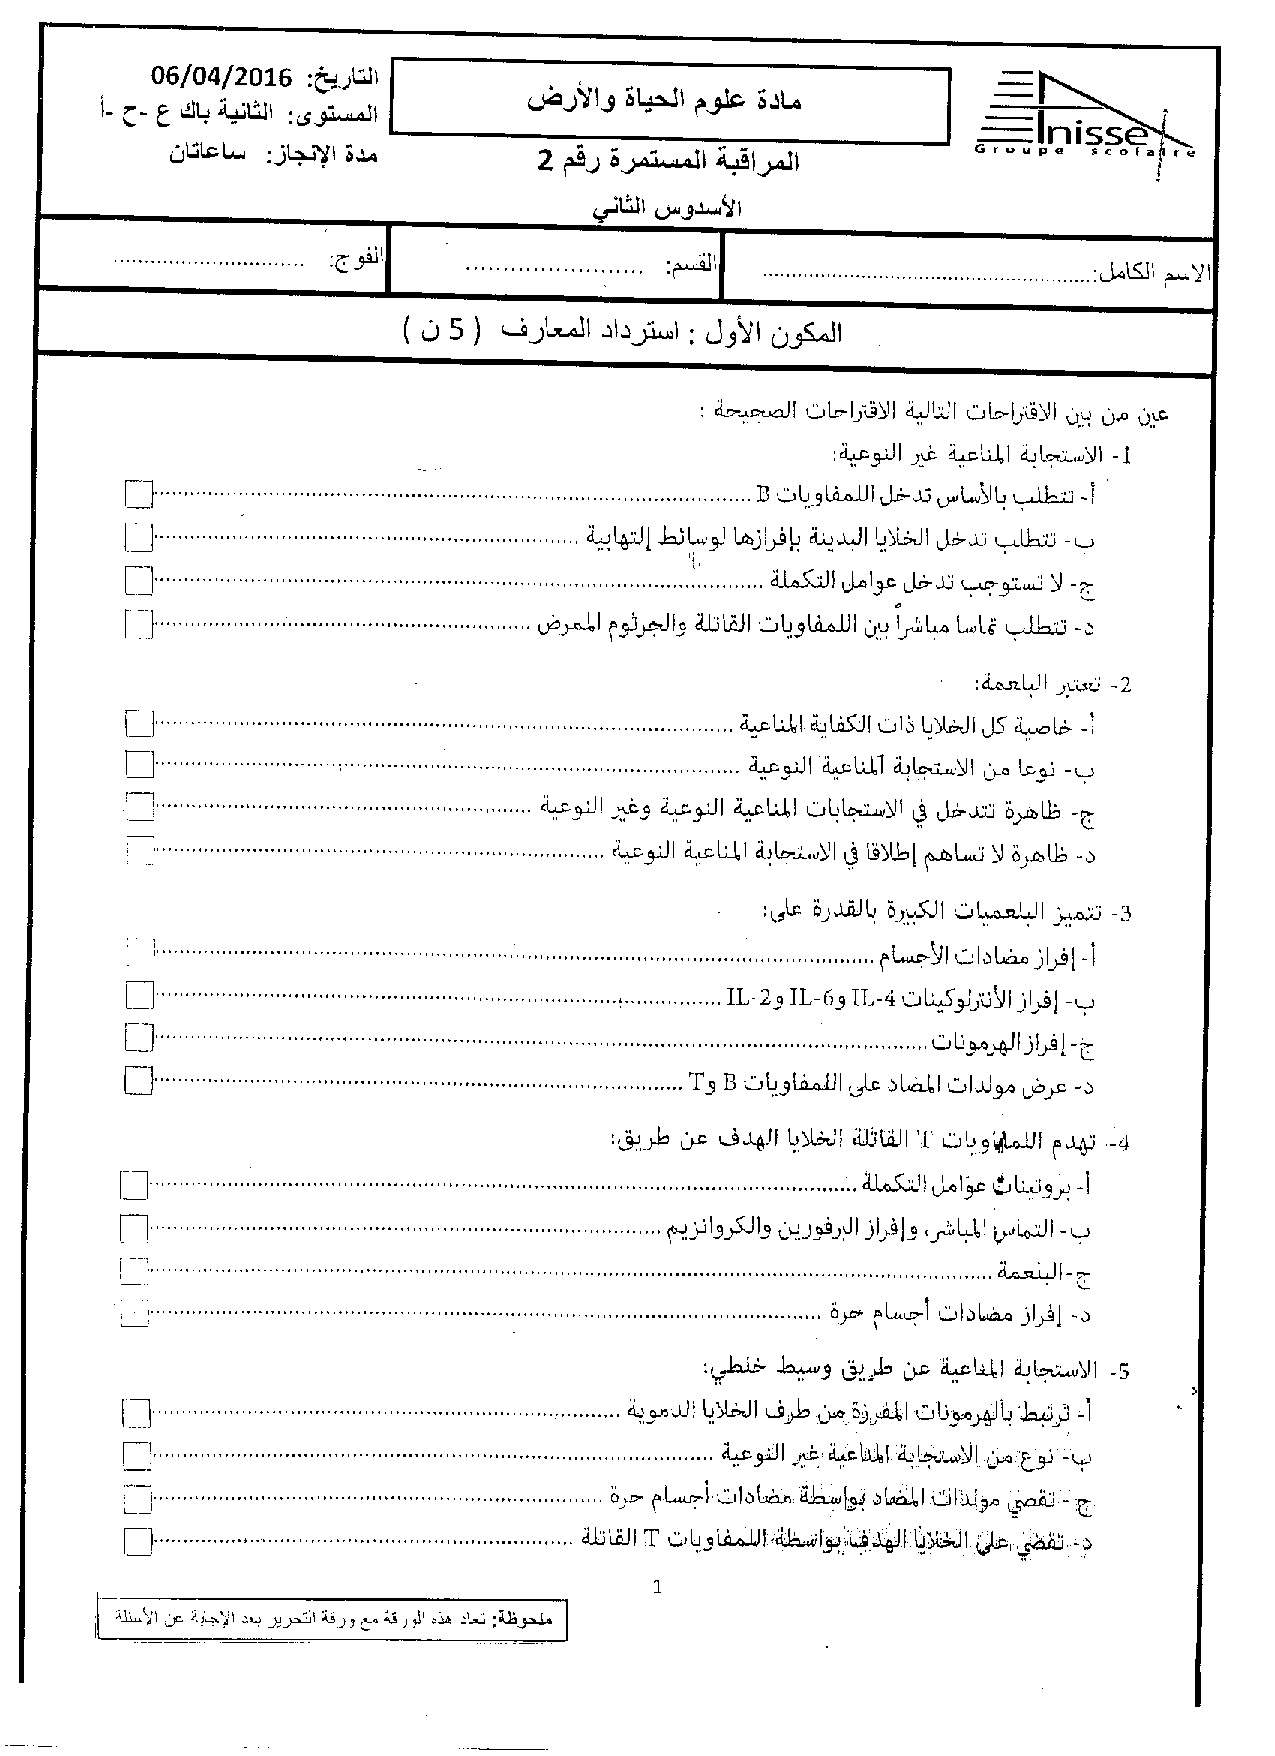 Inisse
Groupe scolaire
مادة علوم الحياة والأرض
المراقبة المستمرة رقم 2
الأسدوس الثاني
التاريخ: 06/04/2016
المستوى: الثانية باك ع -ح -أ
مدة الإنجاز: ساعاتان
الاسم الكامل: ..............................
القسم: ........................
الفوج: ............................
المكون الأول : استرداد المعارف ( 5 ن )
عين من بين الاقتراحات التالية الاقتراحات الصحيحة :
1- الاستجابة المناعية غير النوعية:
أ- تتطلب بالأساس تدخل اللمفاويات B
ب- تتطلب تدخل الخلايا البدينة بإفرازها لوسائط إلتهابية
ج- لا تستوجب تدخل عوامل التكملة
د- تتطلب تماسا مباشراً بين اللمفاويات القاتلة والجرثوم الممرض
2- تعتبر البلعمة:
أ- خاصية كل الخلايا ذات الكفاية المناعية
ب- نوعا من الاستجابة المناعية النوعية
ج- ظاهرة تتدخل في الاستجابات المناعية النوعية وغير النوعية
د- ظاهرة لا تساهم إطلاقا في الاستجابة المناعية النوعية
3- تتميز البلعميات الكبيرة بالقدرة على:
أ- إفراز مضادات الأجسام
ب- إفراز الأنترلوكينات IL-4 وIL-6 وIL-2
ج- إفراز الهرمونات
د- عرض مولدات المضاد على اللمفاويات B وT
4- تهدم اللمفاويات T القاتلة الخلايا الهدف عن طريق:
أ- بروتينات عوامل التكملة
ب- التماس المباشر، وإفراز البرفورين والكروانزيم
ج- البلعمة
د- إفراز مضادات أجسام حرة
5- الاستجابة المناعية عن طريق وسيط خلطي:
أ- ترتبط بالهرمونات المفرزة من طرف الخلايا الدموية
ب- نوع من الاستجابة المناعية غير النوعية
ج- تقصي مولدات المضاد بواسطة مضادات أجسام حرة
د- تقضي على الخلايا الهدف بواسطة اللمفاويات T القاتلة
1
ملحوظة: تعاد هذه الورقة مع ورقة التحرير بعد الإجابة عن الأسئلة